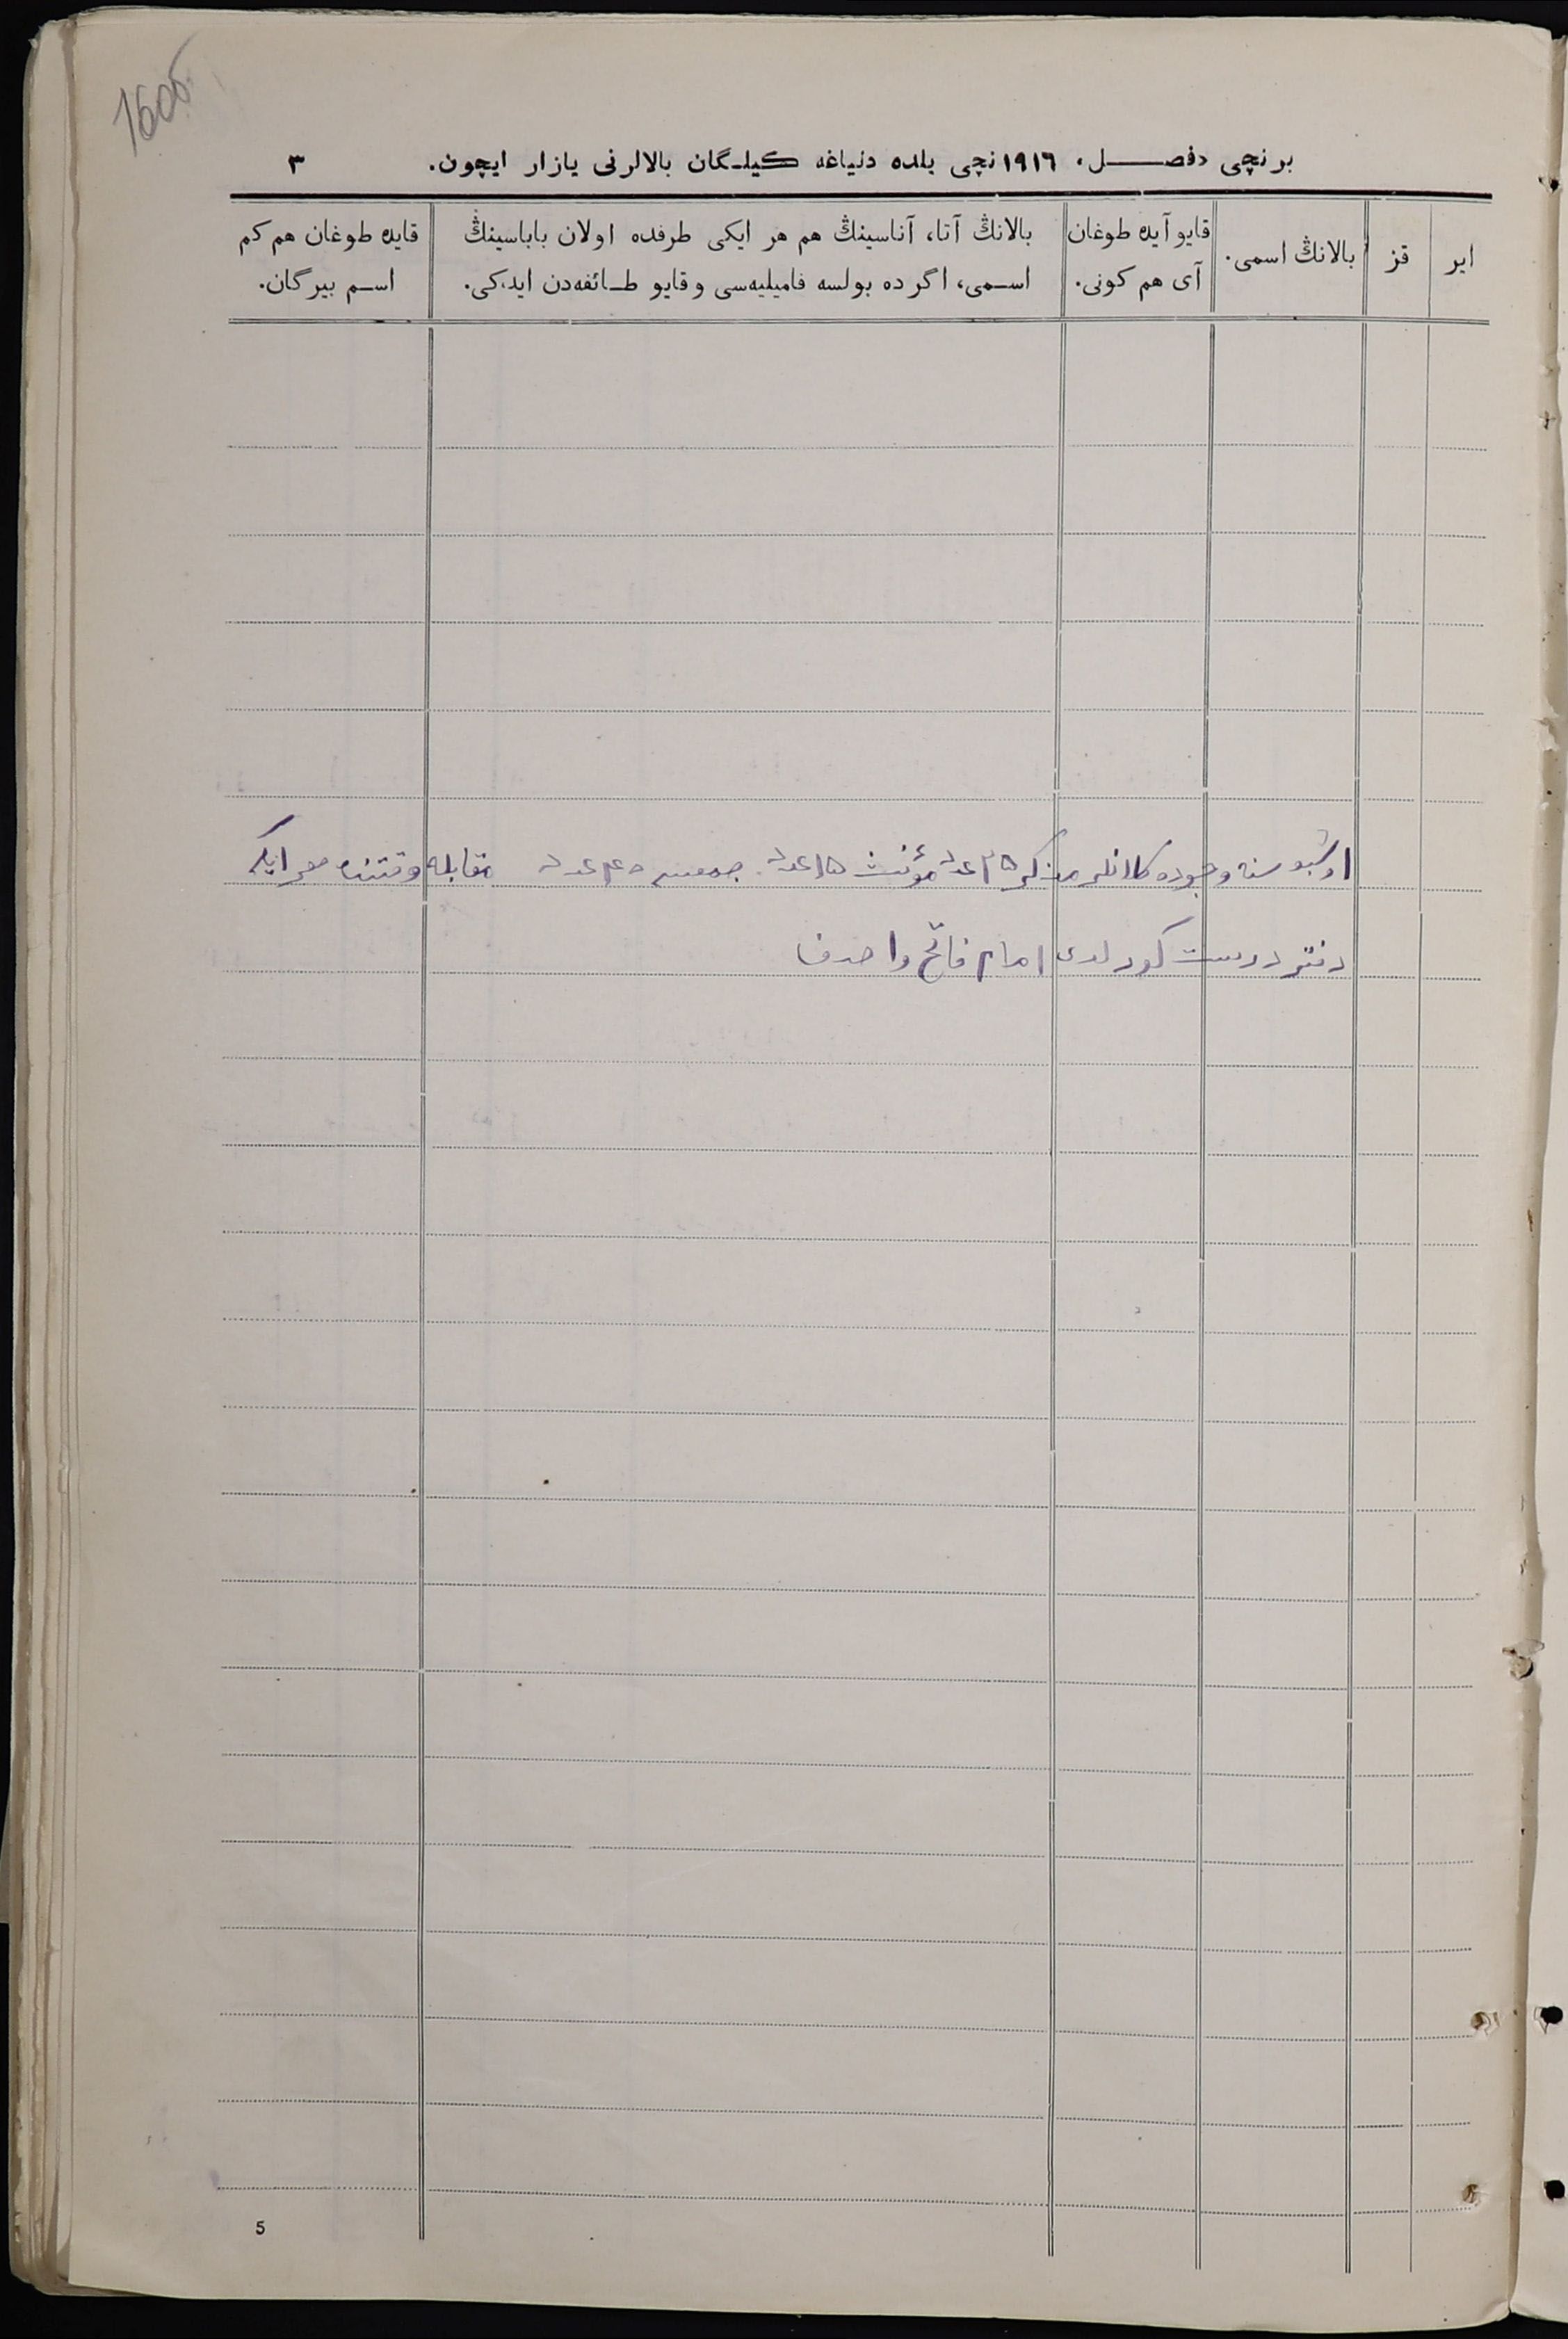 160об
برنچی دفصل. ١٩١٦ نچی یلده دنیاغه کیلگان بالالرنی یازار ایچون. ٣
ایر
قز
بالانڭ اسمی.
قایو آیده طوغان
آی هم کونی.
بالانڭ آتا، آناسینڭ هم هر ایکی طرفده اولان باباسینڭ
اسمی، اگرده بولسه فامیلیه‌سی و قایو طائفه‌دن ایدکی.
قایده طوغان هم کم
اسم بیرگان.
اوشبو سنه وجوده کلانلر مذکر ٢٥ عدد مؤنث ١٥ عدد جمعسی ٤٠ عدد مقابله وقتنده
دفتر درست کورلدی امام فاتح واحدف
5